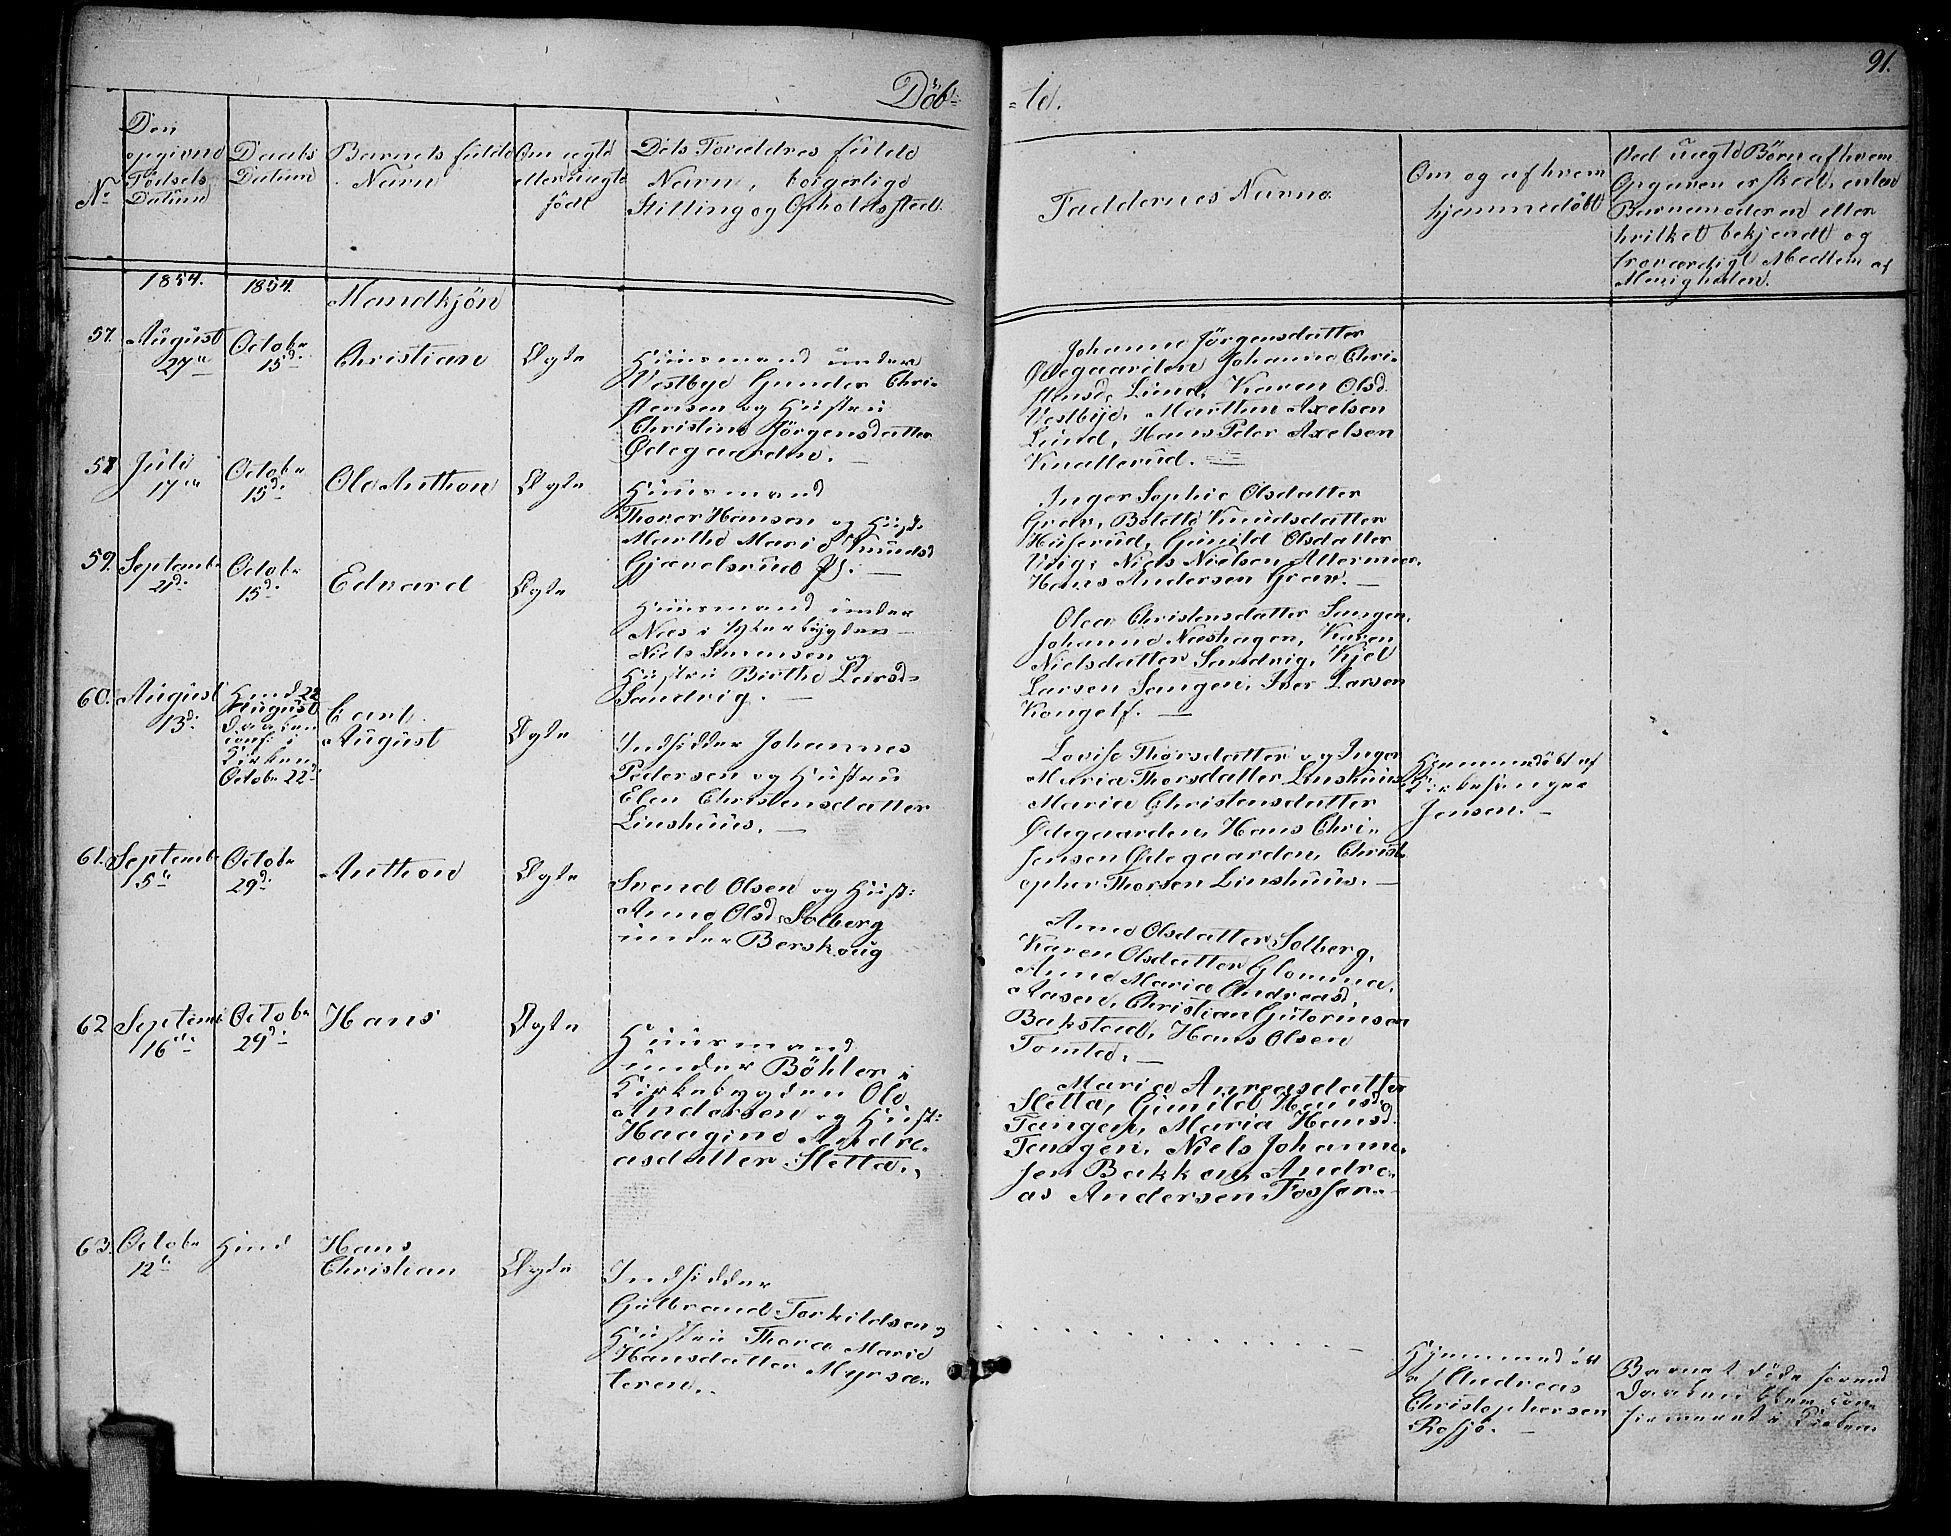 91.
Döb-
-te.
No
Den
opgivne
Födsels
Datum
Daabs
Datum
Barnets fulde
Navn
Om ægte
eller uægte
födt
Dets Forældres fulde
Navn, borgerlige
Stilling og Opholdssted.
Faddernes Navne
Om og af hvem
hjemmedöbt
Ved uægte Börn af hvem
Opgaven er skeet, enten
Barnemoderen eller
hvilket bekjendt og
troværdigt Medlem af
Menigheden.
1854.
1854.
Mandkjön
57.
August
27de
Octobr
15de
Christian
Ægte
Huusmand under
Vestbye Gunder Chri-
stensen og Hustru
Christine Jörgensdatter
Ødegaarden. —
Johanne Jörgensdatter
Ødegaarden, Johanne Chri-
stensd. Lund, Karen Olsd.
Vestbye, Marthin Axelsen
Lund, Hans Peter Axelsen
Knatterud. —
58
Juli
17de
Octobr
15de
Ole Anthon
Ægte
Huusmand
Thorer Hansen og Hust.
Marthe Marie Knudsd.
Gjævelsrud
Inger Sophie Olsdatter
Grav, Bolette Knudsdatter
Huserud, Gunild Olsdatter
Niels Nielsen
Hans Andersen Grav. —
59.
Septembr
2de
Octobr
15de
Edvard
Ægte
Huusmand under
Næs i Ytterbygden —
Niels Sörensen og
Hustru Birthe Larsd-
Sandvig. —
Olea Christensdatter Sangen,
Johanne Næshagen, Karen
Nielsdatter Sandvig, Kjel
Larsen Sangen, Iver Larsen
Kongelf. —
60.
August
13de
Hiemd 22
August
Daaben
conf: i
Kirken
Octobr 22de
Carl
August
Ægte
Indsidder Johannes
Pedersen og Hustru
Elen Christensdatter
Linshuus. —
Lovise Thorsdatter og Inger
Maria Thorsdatter Linshuus,
Maria Christensdatter
Ødegaarden, Hans Chri-
stensen Ødegaarden, Christ-
opher Thorsen Linshuus. —
Hjemmedöbt af
Kirkesanger
Jensen. —
61.
Septembr
5te
Octobr
29de
Anthon
Ægte
Svend Olsen og Hust:
Anne Olsd. Solberg
under Berskoug
Anne Olsdatter Solberg,
Karen Olsdatter Glomma,
Anne Maria Andreasd.
Aasen, Christian Gutormsen
Bakstad, Hans Olsen
Tomta. —
62
Septembr
16de
Octobr
29de
Hans
Ægte
Huusmand
under Böhler i
Kirkebygden Ole
Andersen og Hust:
Haagine Andre-
asdatter Sletta.
Maria Anreasdatter
Sletta, Gunild Hansd.
Tangen, Maria Hansd.
Tangen, Niels Johanne-
sen Bakken, Andre-
as Andersen Fosser. —
63.
Octobr
12te
Hiemd
Hans
Christian
Ægte
Indsidder
Gulbrand Torkildsen og
Hustru Thora Marie
Hansdatter Myrsæ-
teren.
Hjemmedöbt
af Andreas
Christophersen
Rosjö. —
Barnet döde forend
Daaben blev con-
firmeret i Kirken